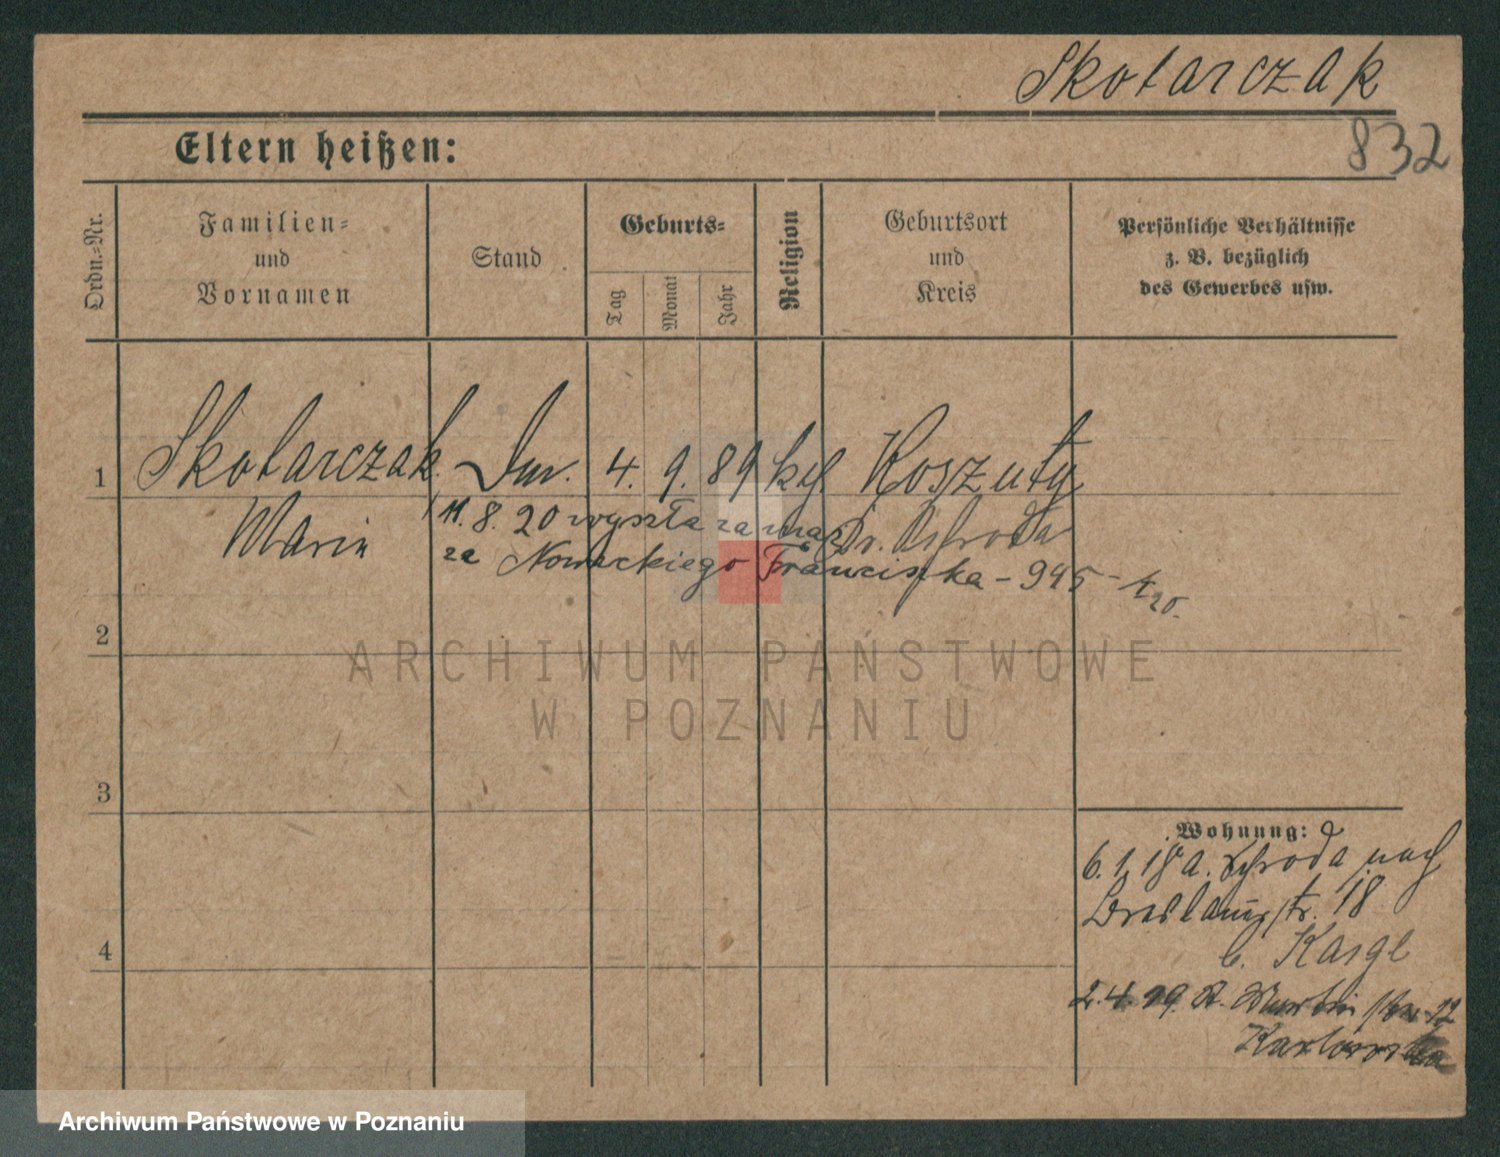 Skotarczak
832
Eltern heißen:
Ordn.-Nr.
Familien-
und
Vornamen
Stand
Geburts-
Tag
Monat
Jahr
Religion
Geburtsort
und
Kreis
Persönliche Verhältnisse
z. B. bezüglich
des Gewerbes usw.
1
Skotarczak
4. 9. 89 kth Koszuty
Maria
Kr. Schroda
11. 8. 20 wyszła za mąż
za Nowackiego Franciszka - 945 - 4/20.
2
ARCHIWUM PAŃSTWOWE
W POZNANIU
3
Wohnung:
6. 1. 18 a. Schroda nach
Breslauerstr. 18
b. Karge
2. 4. 19. St. Martin str. 12
4
Archiwum Państwowe w Poznaniu